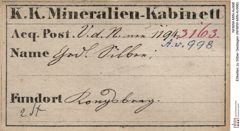 K.K. Mineralien-Kabinett
Acq. Post. V. d. N. 1194. 3163.
A.v. 998
Name Ged. Silber.
Fundort Kongsberg.
2 St